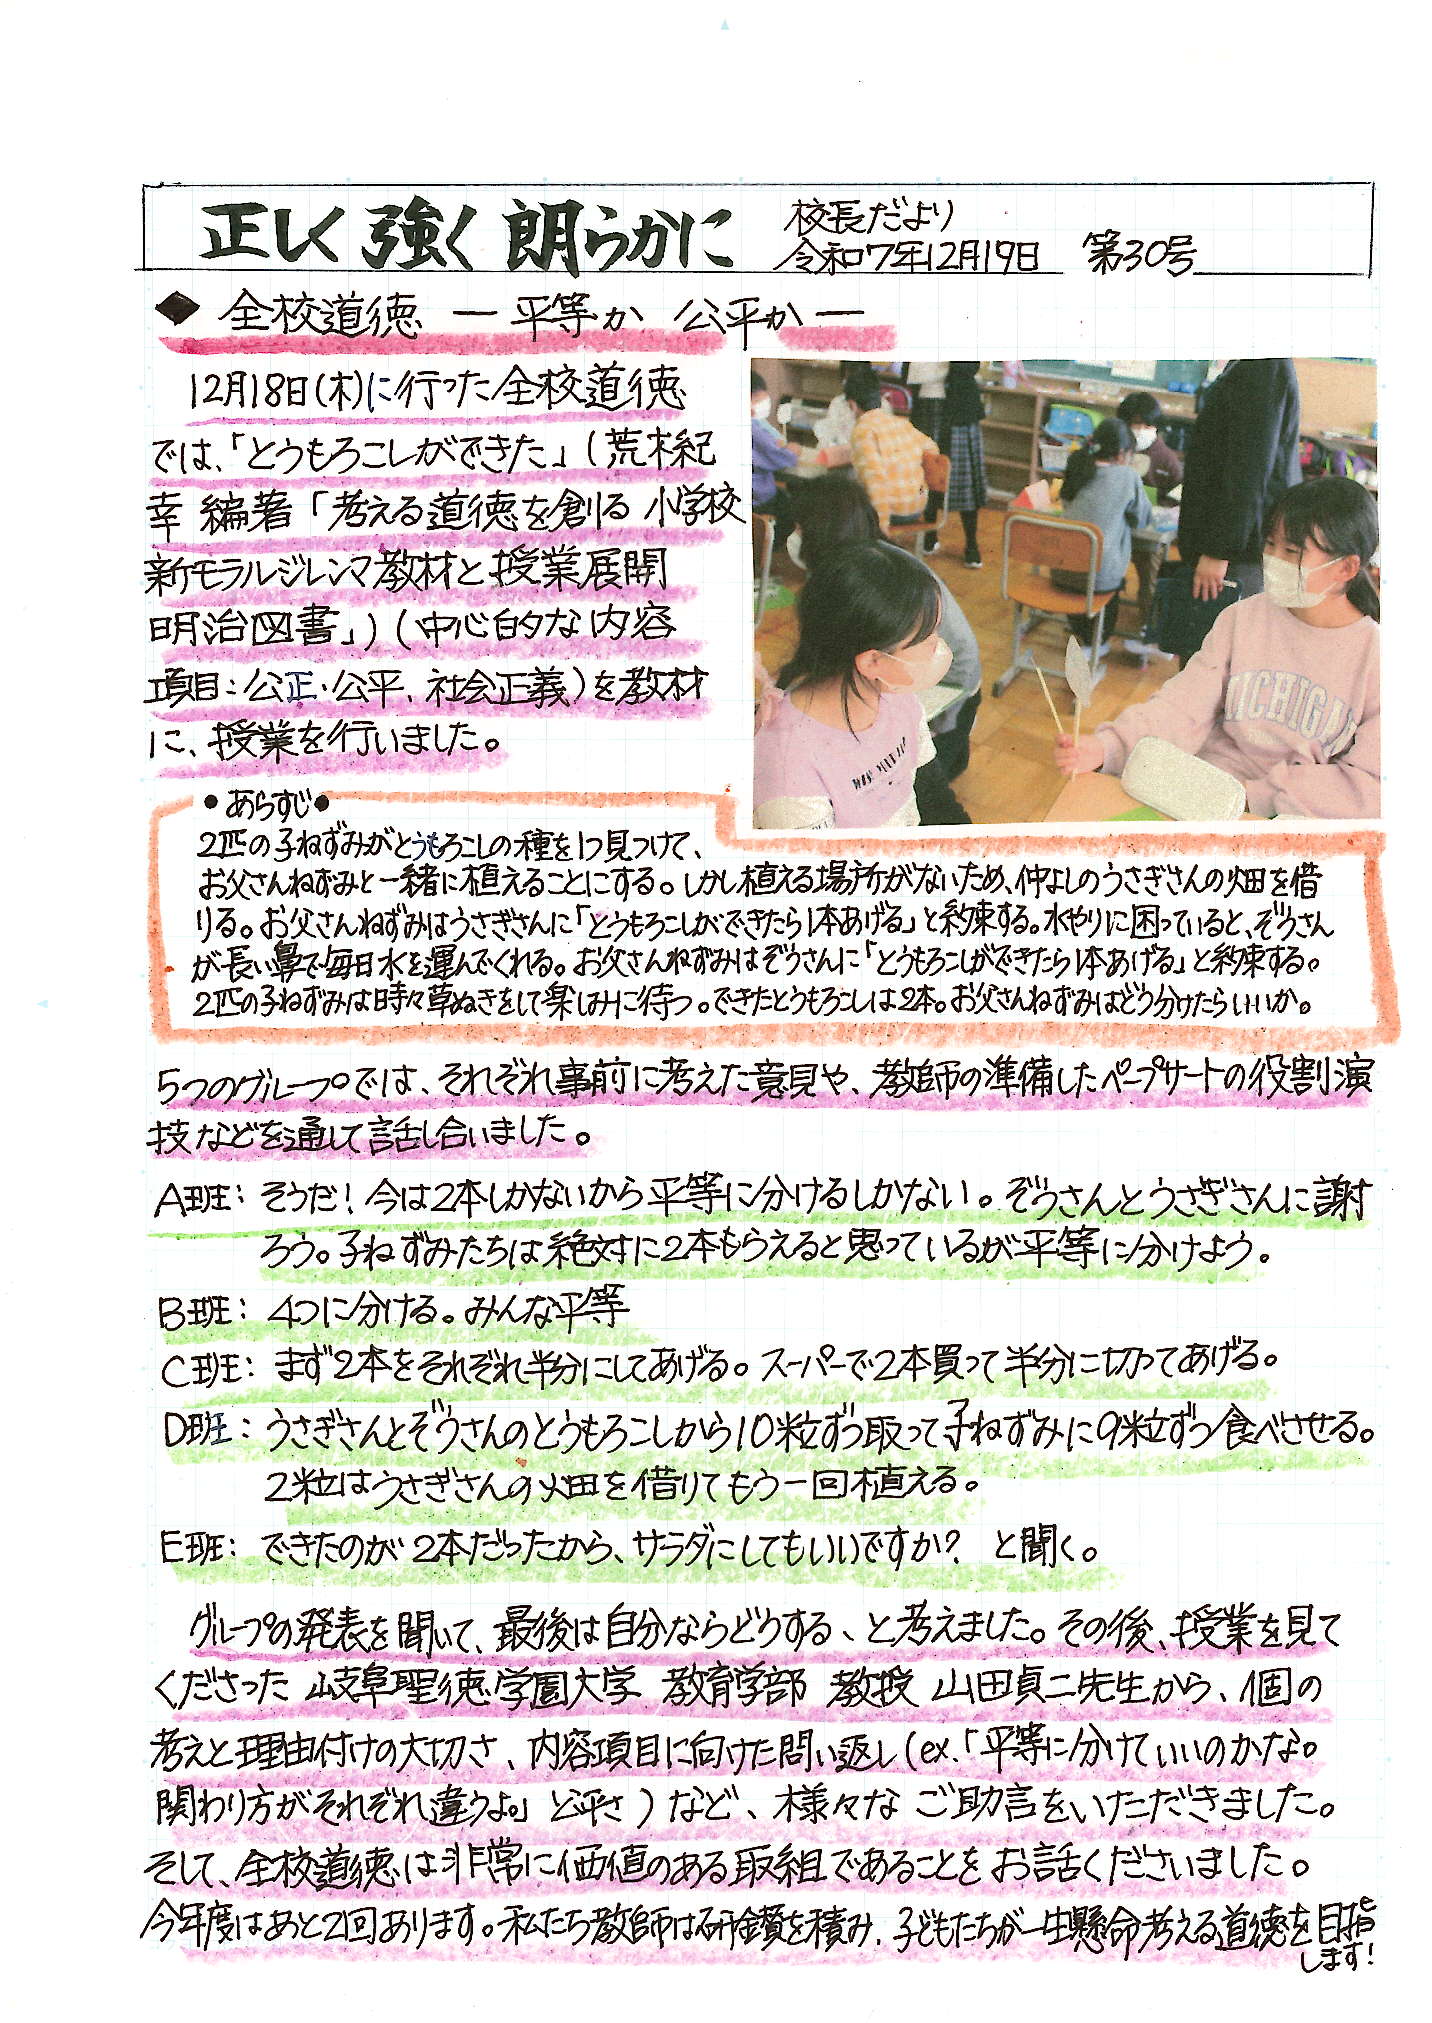 正しく 強く 朗らかに
校長だより
令和7年12月19日 第30号
◆ 全校道徳 ー 平等か 公平か ー
12月18日(木)に行った全校道徳
では、「とうもろこしができた」(荒木紀
幸 編著「考える道徳を創る 小学校
新モラルジレンマ教材と授業展開
明治図書」)(中心的な内容
項目:公正・公平、社会正義)を教材
に、授業を行いました。
●あらすじ●
2匹の子ねずみがとうもろこしの種を1つ見つけて、
お父さんねずみと一緒に植えることにする。しかし植える場所がないため、仲よしのうさぎさんの畑を借
りる。お父さんねずみはうさぎさんに「とうもろこしができたら1本あげる」と約束する。水やりに困っていると、ぞうさん
が長い鼻で毎日水を運んでくれる。お父さんねずみはぞうさんに「とうもろこしができたら1本あげる」と約束する。
2匹の子ねずみは時々草ぬきをして楽しみに待つ。できたとうもろこしは2本。お父さんねずみはどう分けたらいいか。
5つのグループでは、それぞれ事前に考えた意見や、教師の準備したペープサートの役割演
技などを通して話し合いました。
A班: そうだ!今は2本しかないから平等に分けるしかない。ぞうさんとうさぎさんに謝
ろう。子ねずみたちは絶対に2本もらえると思っているが平等に分けよう。
B班: 4つに分ける。みんな平等
C班: まず2本をそれぞれ半分にしてあげる。スーパーで2本買って半分に切ってあげる。
D班: うさぎさんとぞうさんのとうもろこしから10粒ずつ取って子ねずみに9粒ずつ食べさせる。
2粒はうさぎさんの畑を借りてもう一回植える。
E班: できたのが2本だったから、サラダにしてもいいですか? と聞く。
グループの発表を聞いて、最後は自分ならどうする、と考えました。その後、授業を見て
くださった 岐阜聖徳学園大学 教育学部 教授 山田貞二先生から、個の
考えと理由付けの大切さ、内容項目に向けた問い返し(ex.「平等に分けていいのかな。
関わり方がそれぞれ違うよ。」と)など、様々な ご助言をいただきました。
そして、全校道徳は非常に価値のある取組であることをお話くださいました。
今年度はあと2回あります。私たち教師は研鑽を積み、子どもたちが一生懸命考える道徳を目指
します!